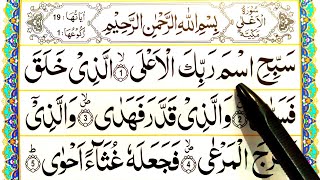 سُوْرَةُ الْاَعْلٰى مَكِّيَّةٌ
بِسْمِ اللّٰهِ الرَّحْمٰنِ الرَّحِيْمِ
اٰيَاتُهَا : 19
رُكُوْعُهَا : 1
سَبِّحِ اسْمَ رَبِّكَ الْاَعْلَى ۙ‏﴿1﴾ الَّذِىْ خَلَقَ
وَالَّذِىْ قَدَّرَ فَهَدٰى ۙ‏﴿3﴾ وَالَّذِىْۤ
الْمَرْعٰى ۙ‏﴿4﴾ فَجَعَلَهٗ غُثَآءً اَحْوٰى ؕ‏﴿5﴾